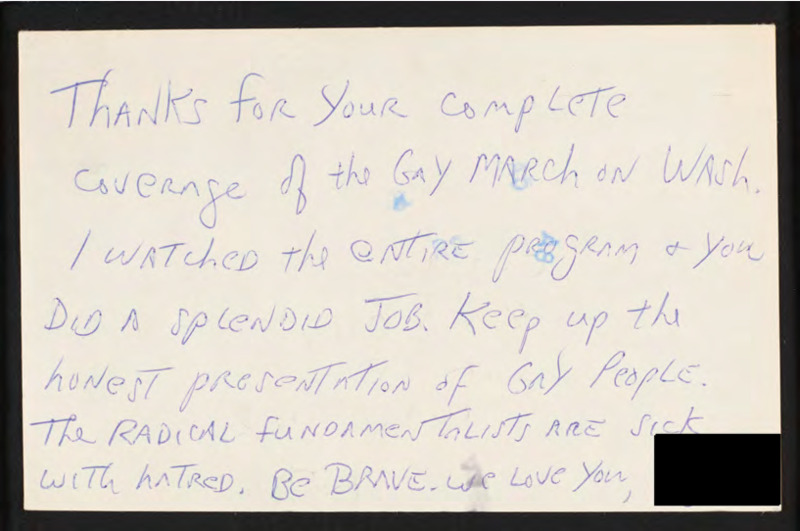 Thanks for your complete
coverage of the Gay March on Wash.
I watched the entire program & you
did a splendid job. Keep up the
honest presentation of Gay People.
The radical fundamentalists are sick
with hatred. Be brave. We love you,